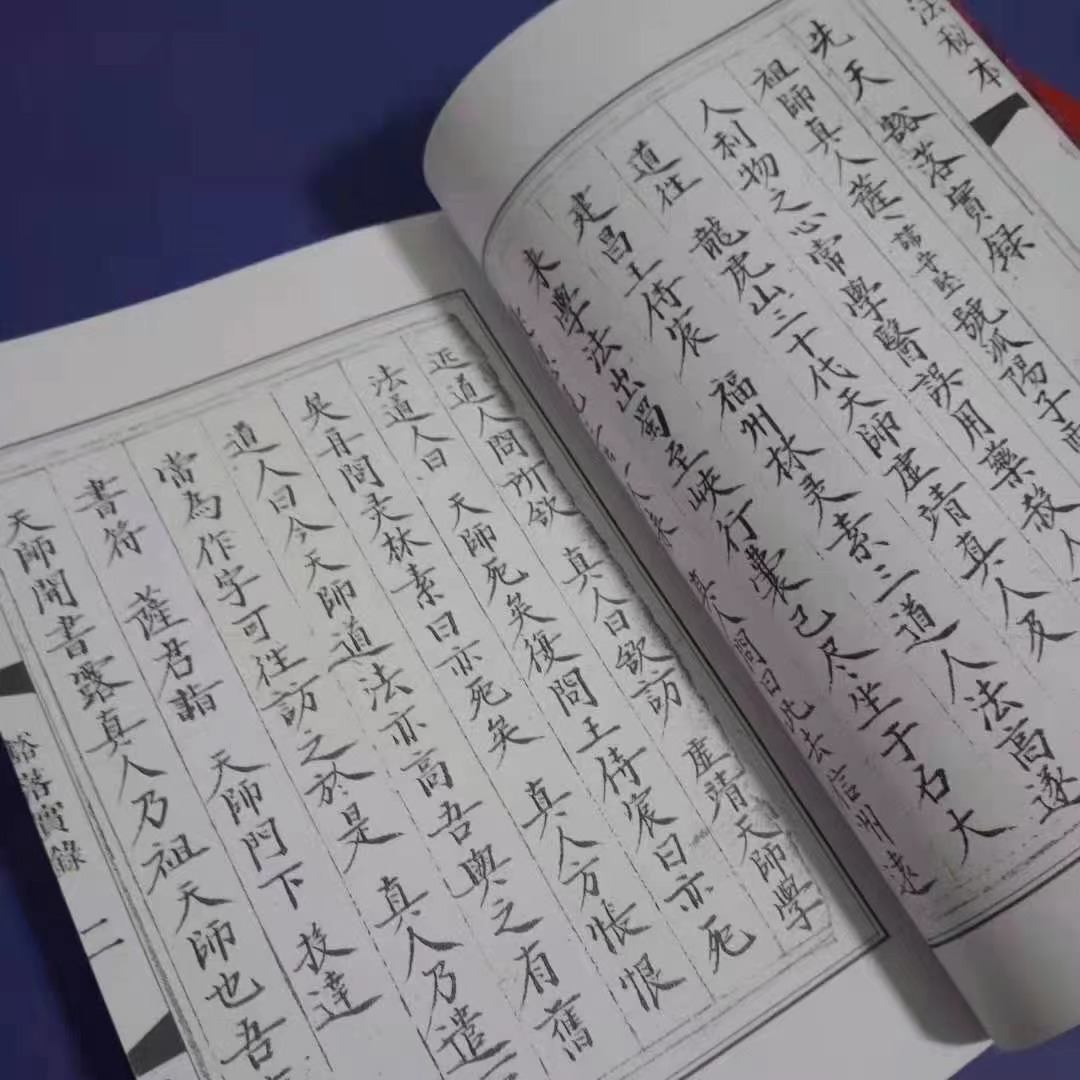 法秘本
先天豁落實録
祖師真人薩諱守堅號汎陽子
人利物之心常學醫誤用藥殺人
道往 龍虎山三十代天師虚靖真人及
建昌王侍宸 福州林灵素三道人法高遂
来學法出蜀至峽行囊已尽坐于石大
真人問曰此去信州遠
近道人問所欲 真人曰欲訪 虚靖天師學
法道人曰 天師死矣復問王侍宸曰亦死
矣再問灵林素曰亦死矣 真人方悵恨
道人曰今天師道法亦高吾與之有舊
當為作字可往訪之於是 真人乃遣
書符 薩君詣 天師門下 投達
天師開書露真人乃祖天師也吾
豁落實錄 二